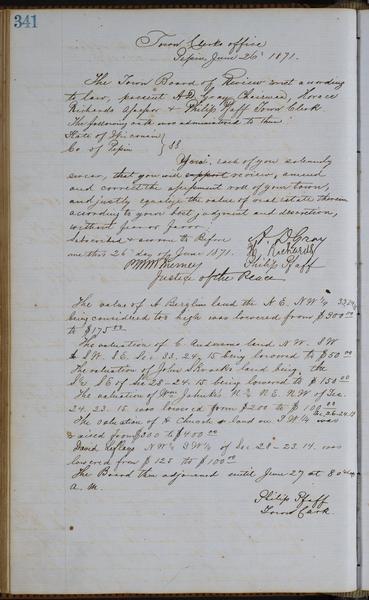 341
Town Clerks office
Pepin, June 26 1871.
The Town Board of Review met according
to law, present A.D. Gray Chairman, Horace
Richards Assessor & Philip Pfaff Town Clerk
The following oath was administered to them:
State of Wisconsin
Co of Pepin } SS
You, each of you solemnly
swear, that you will support review, amend
and correct the assessment roll of your town,
and justly equalize the value of real estate therein
according to your best judgment and discretion,
without fear or favor.
Subscribed & sworn to Before
me this 26 day of June 1871.
A. D Gray
H Richards
Philip Pfaff
Justice of the Peace
The value of A Berglin land the N.E. N.W ¼
being considered too high was lowered from $300 00
to $175 00
The valuation of C Anderson land N.W. S W
& S.W. S E. Sec 33. 24. 15 being lowered to $50 00
The valuation of John land being the
S½ S E of Sec 28-24. 15 being lowered to $150 00
The valuation of Wm N.½ N.E. N.W of Sec.
24. 23. 15. was lowered from $200 to $100 00
The valuation of A land on S W ¼ Sec 26-24-15 was
raised from $300 to $400 00
David N.W ¼ S W ¼ of Sec 28-23.14. was
lowered from $125 to $100 00
The Board then adjourned until June 27 at 8 o'clock
a. m.
Philip Pfaff
Town Clerk